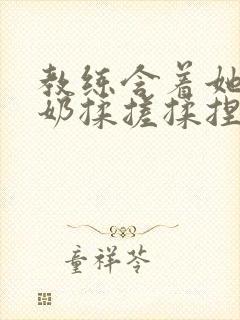 教练含着她
奶揉搓揉捏
童祥苓